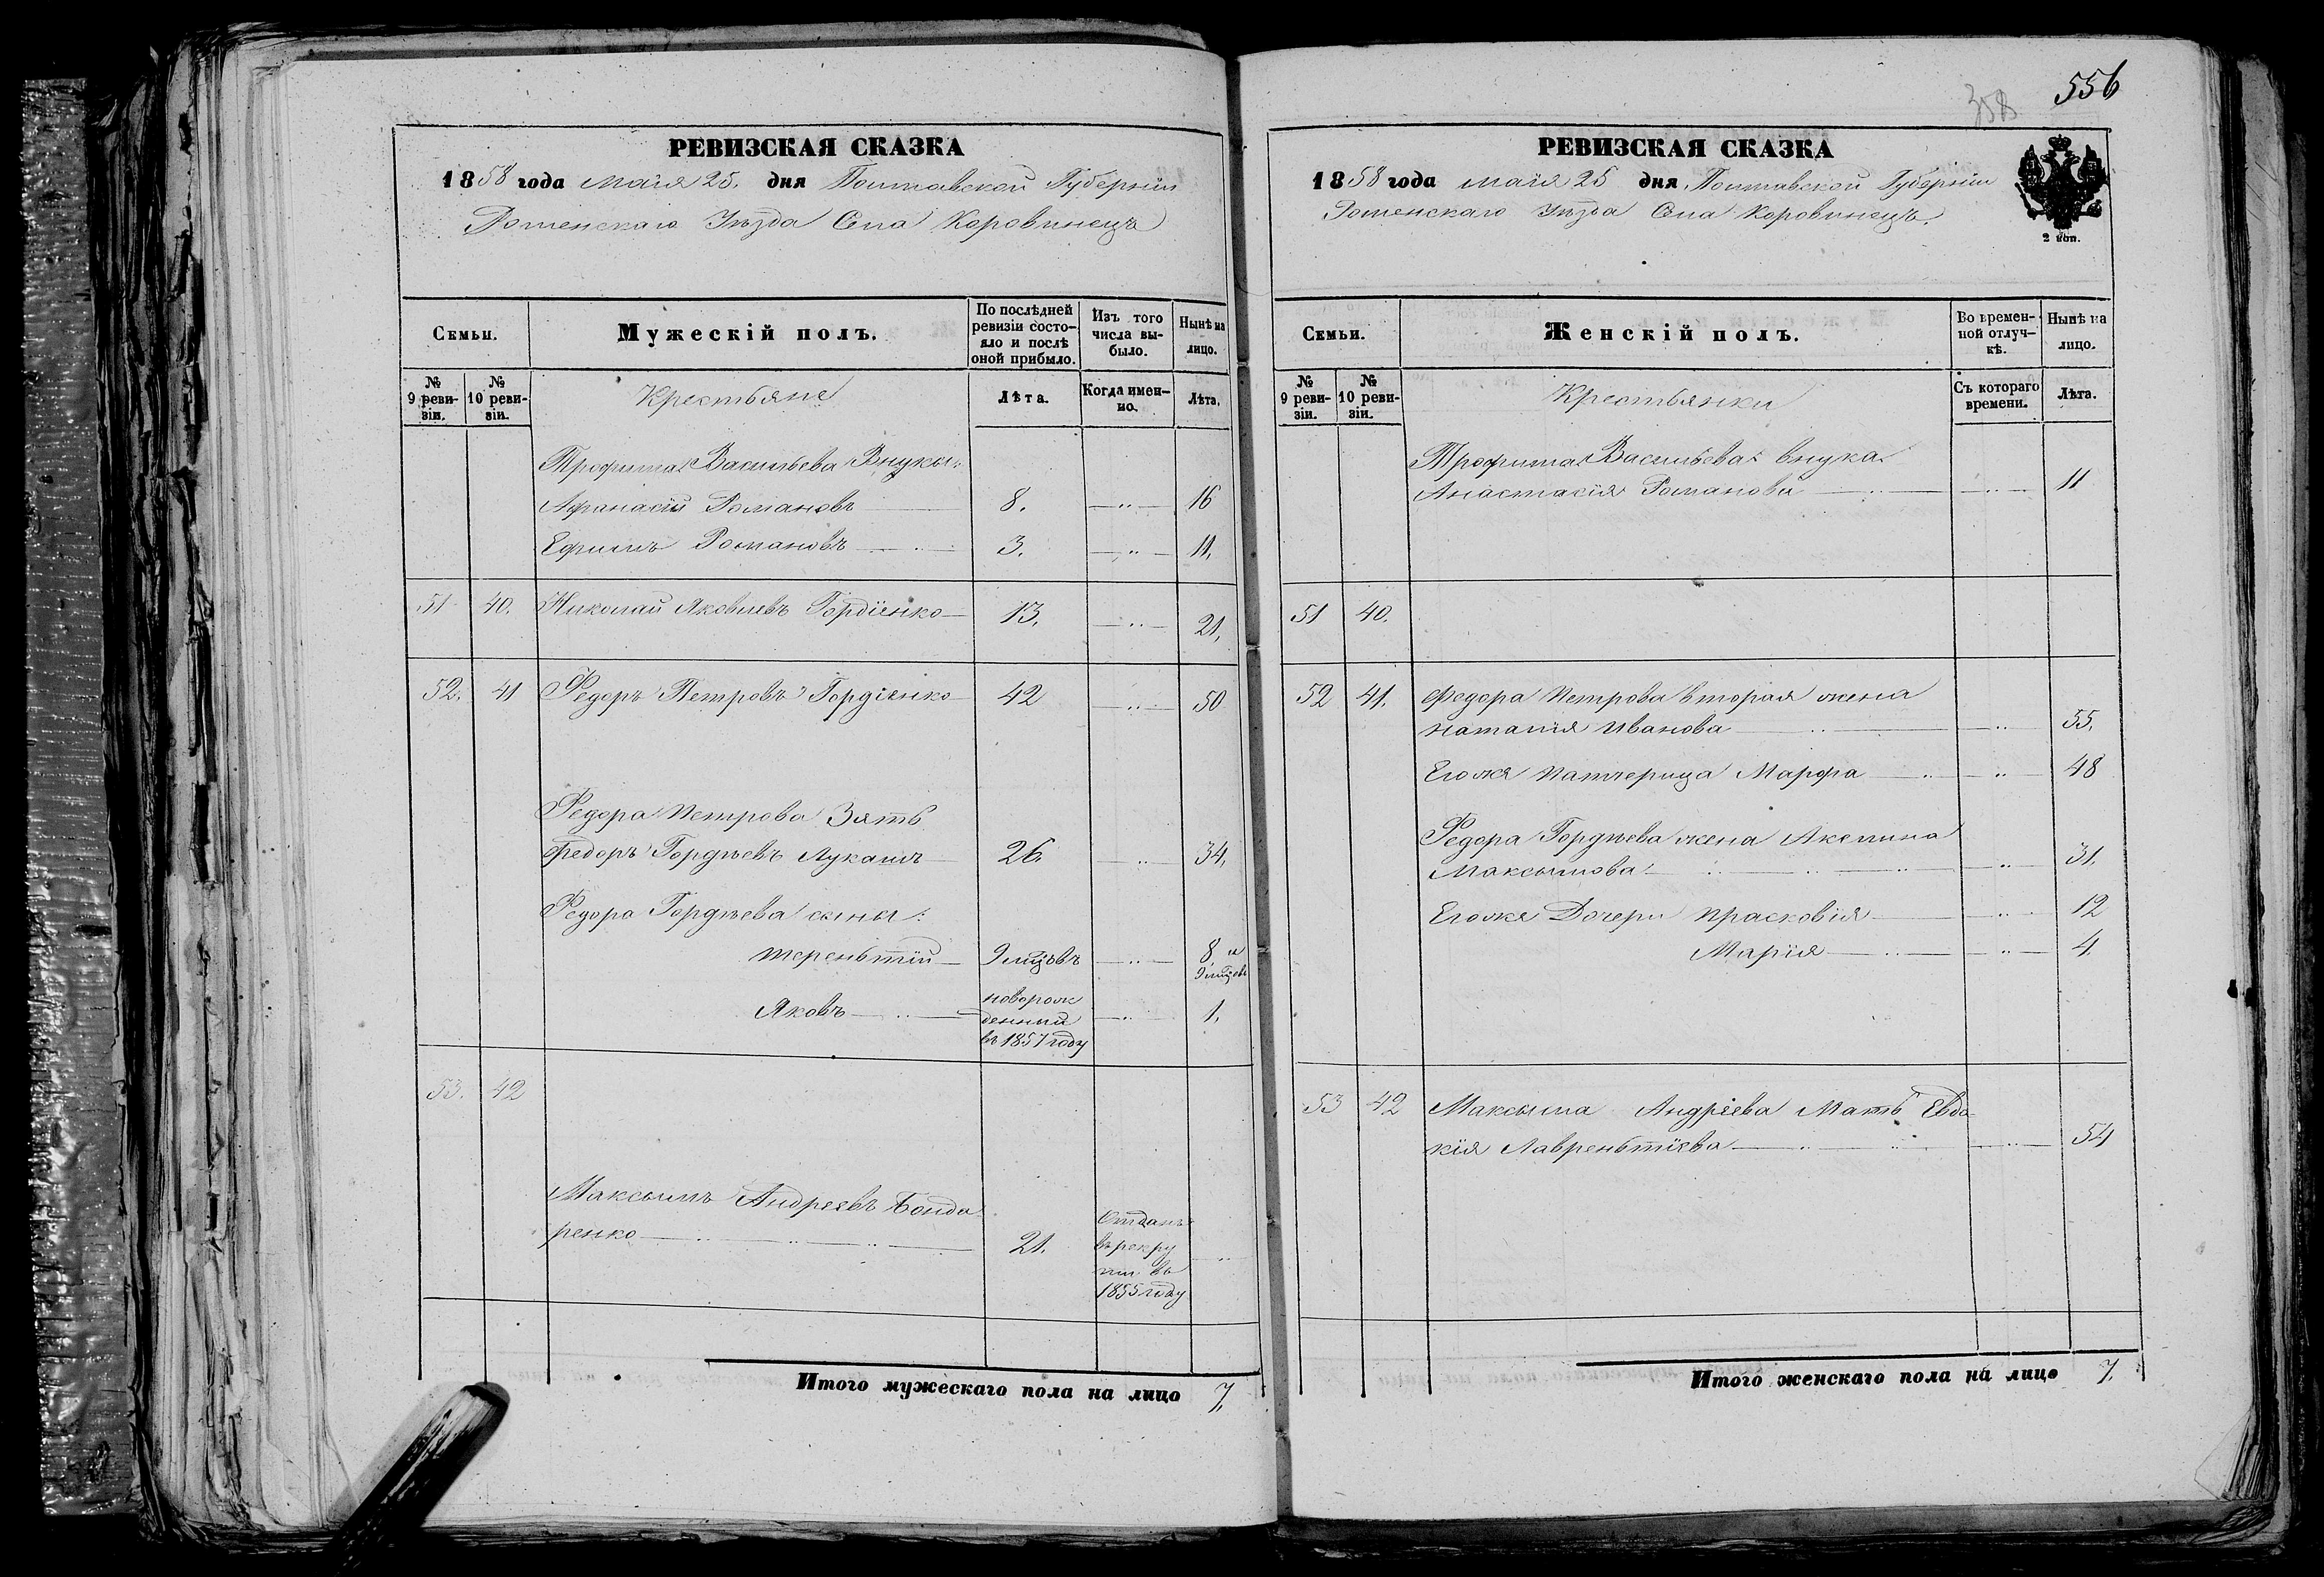 РЕВИЗСКАЯ СКАЗКА
1858 года маія 25. дня Полтавской Губерніи
Роменскаго Уѣзда Села Коровинецъ
Семьи.
Мужескій полъ.
По послѣдней ревизіи состо-
яло и послѣ оной прибыло.
Изъ того числа вы-
было.
Нынѣ на лицо.
№ 9 реви-
зіи.
№ 10 реви-
зіи.
Крестьяне
Лѣта.
Когда имен-
но.
Лѣта.
Трофима Васильева Внуки:
Афанасій Романовъ 8. 16
Ефимъ Романовъ 3. 11.
51 40. Николай Яковлевъ Гордіенко 13. 21.
52. 41 Федоръ Петровъ Гордіенко 42 50
Федора Петрова Зять
Федоръ Гордѣевъ Лукашъ 26. 34.
Федора Гордѣева сыны:
Терентьтій 9 мцѣвъ 8 и
9 мцѣвъ
Яковъ новорож
денный
въ 1857 году 1.
53. 42
Максымъ Андреевъ Бонда
ренко 21. Отданъ
въ рекру
ты въ
1855 году
Итого мужескаго пола на лицо 7.
556
358
РЕВИЗСКАЯ СКАЗКА
1858 года маія 25 дня Полтавской Губерніи
Роменскаго Уѣзда Села Коровинецъ.
2 коп.
Семьи.
Женскій полъ.
Во времен-
ной отлуч-
кѣ.
Нынѣ на лицо.
№ 9 реви-
зіи.
№ 10 реви-
зіи.
Крестьянки
Съ котораго времени.
Лѣта.
Трофима Васильева внука
Анастасія Романова 11
51 40.
52 41. Федора Петрова вторая жена
Наталія Иванова 55.
Егоже Патчерица Марфа 48
Федора Гордѣева жена Акелина
Максымова 31.
Егоже Дочери Прасковія 12
Марія 4.
53 42 Максыма Андріева Мать Евдо
кія Лаврентьтіева 54
Итого женскаго пола на лицо 7.